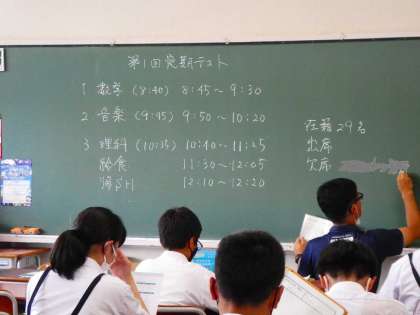 第1回定期テスト
1 数学 (8:40) 8:45〜9:30
2 音楽 (9:45) 9:50〜10:20
3 理科 (10:35) 10:40〜11:25
給食 11:30〜12:05
帰SH 12:10〜12:20
在籍 29名
出席
欠席